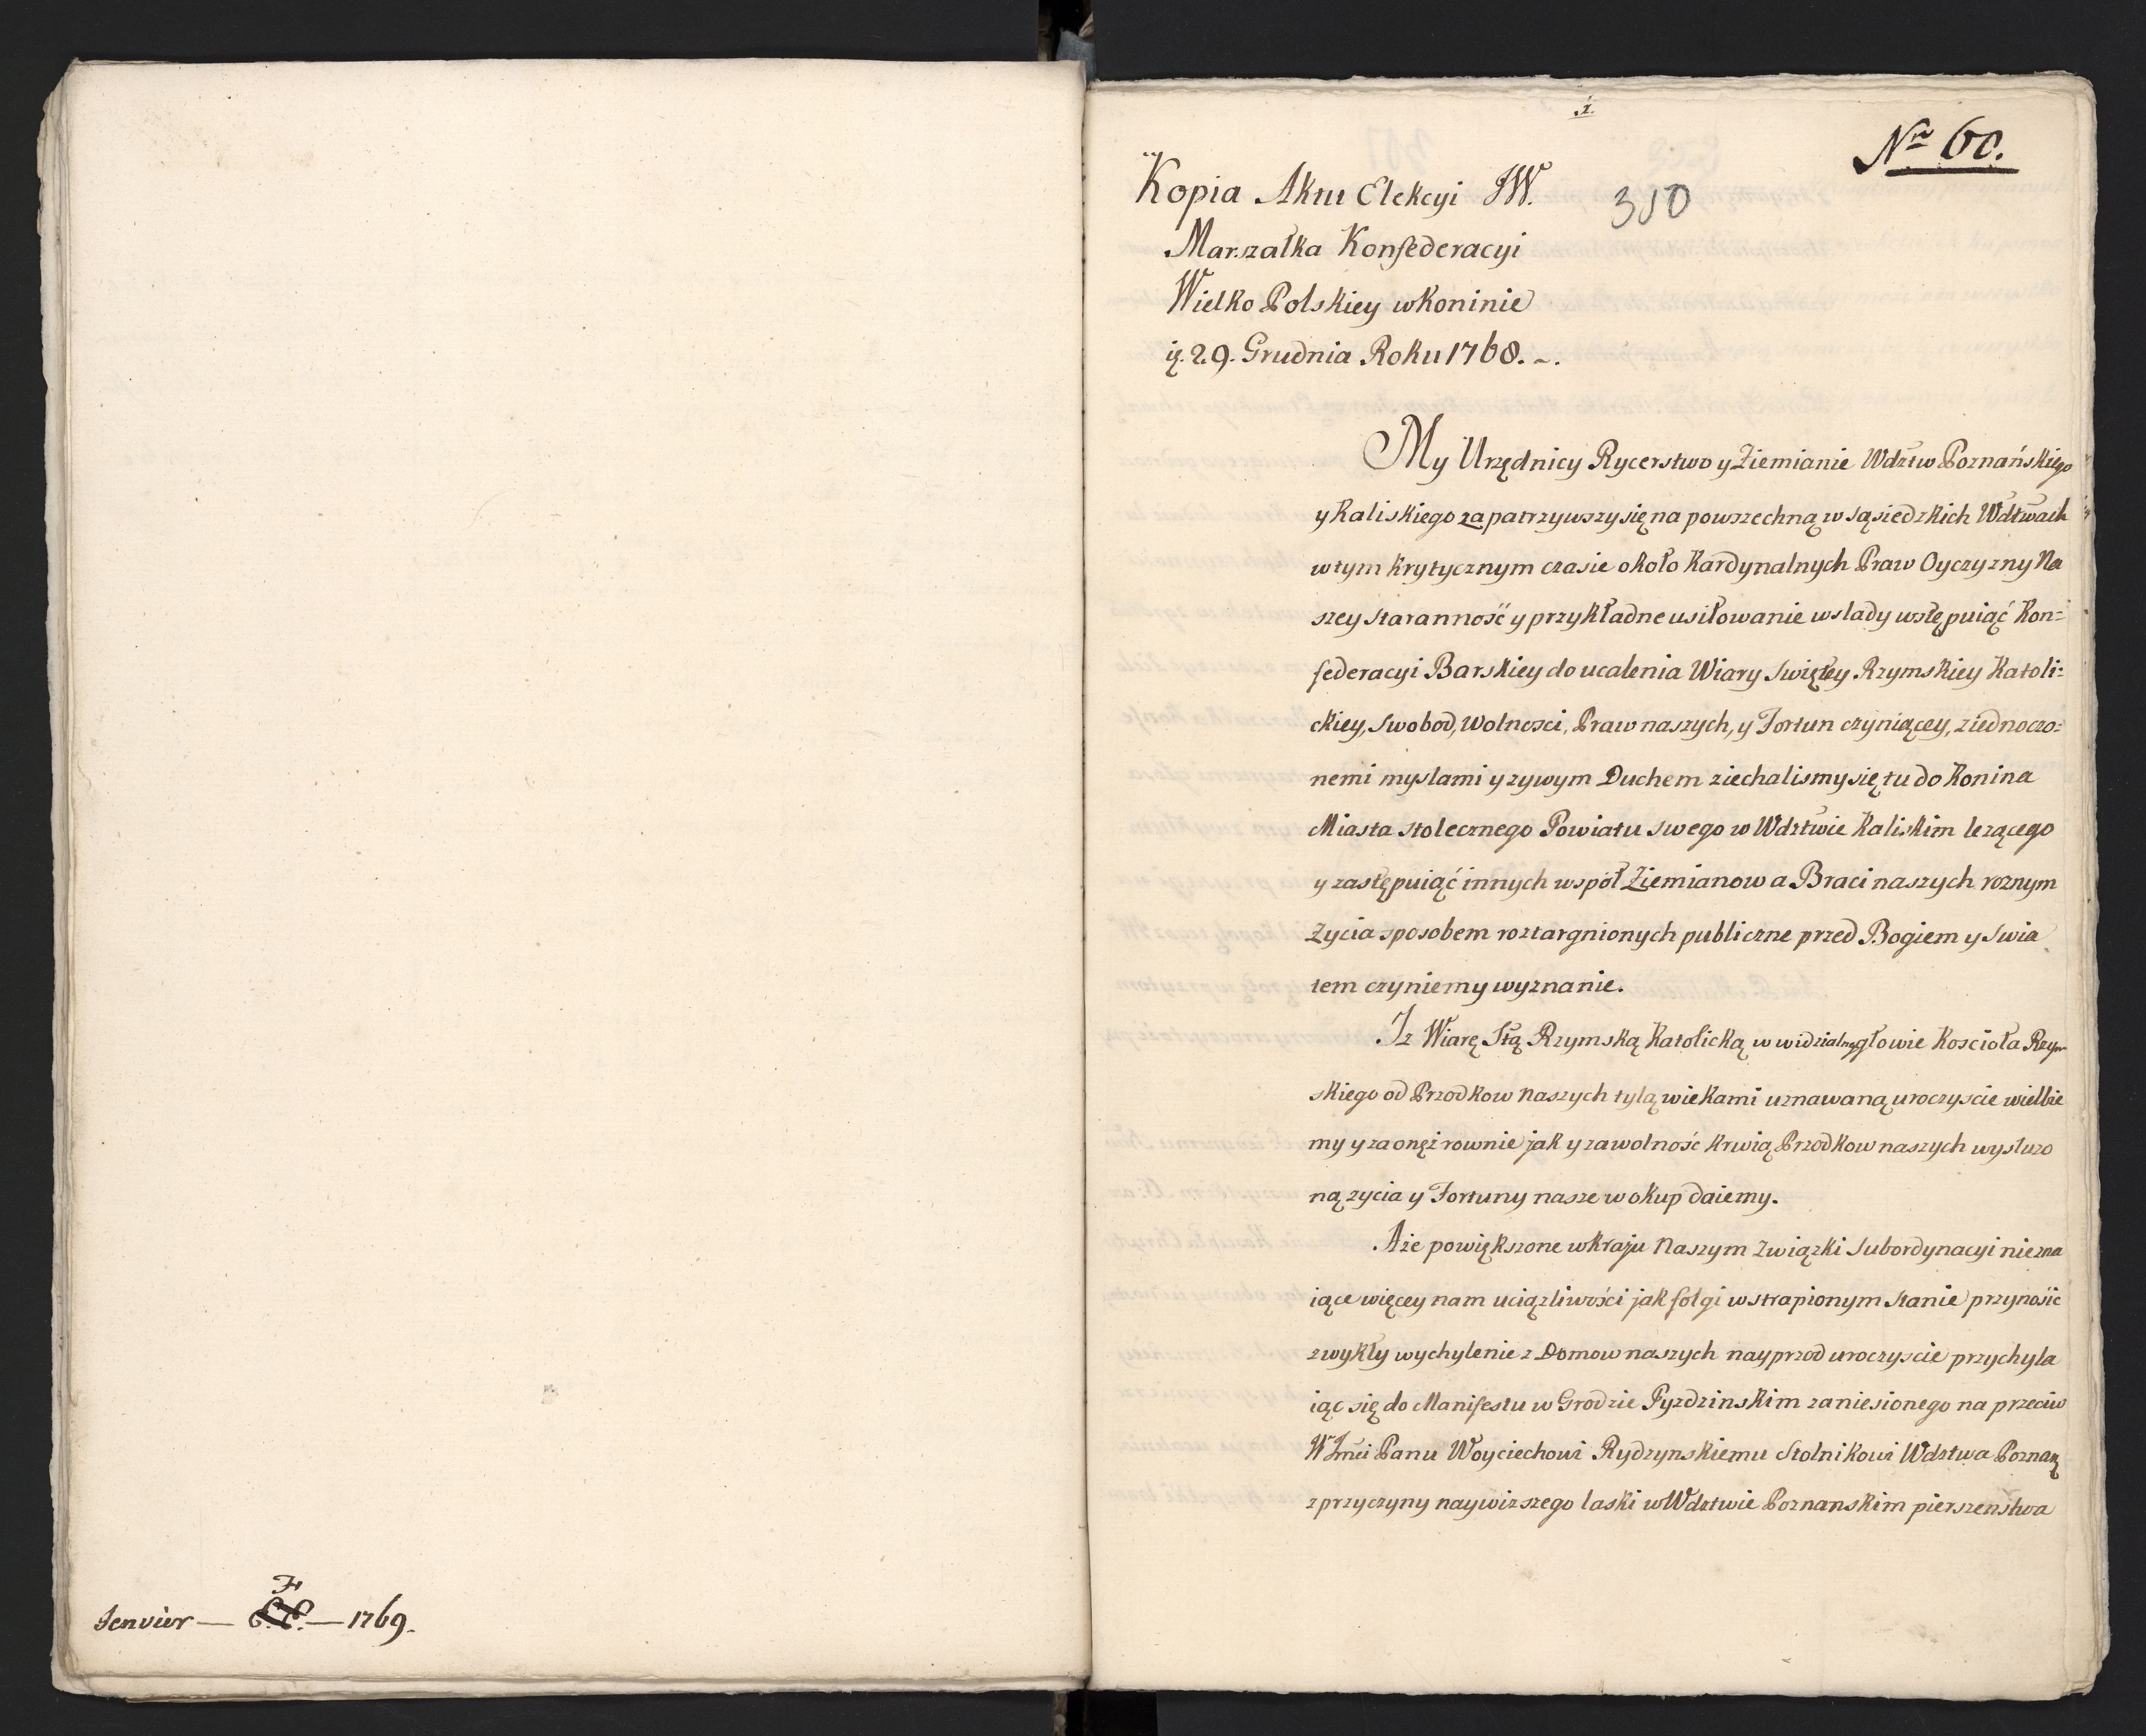 Jenvier — F — 1769.
1.
Nro 60.
310
Kopia Aktu Elekcyi JW.
Marszałka Konfederacyi
Wielko Polskiey w Koninie
29. Grudnia Roku 1768.
My Urzędnicy Rycerstwo y Ziemianie Wdztw Poznańskiego
y Kaliskiego zapatrzywszy się na powszechną w sąsiedzkich Wdztwach
w tym krytycznym czasie około Kardynalnych Praw Oyczyzny Na
szey staranność y przykładne usiłowanie w slady wstępuiąć Kon=
federacyi Barskiey do ucalenia Wiary Swiętey Rzymskiey Katoli=
ckiey, Swobod, Wolnosci, Praw naszych, y Fortun czyniącey, ziednoczo=
nemi myslami y zywym Duchem ziechalismy się tu do Konina
Miasta stolecznego Powiatu swego w Wdztwie Kaliskim lezącego
y zastępuiąć innych wspoł Ziemianow a Braci naszych roznym
Zycia sposobem roztargnionych publiczne przed Bogiem y Swia
tem czyniemy wyznanie.
Iz Wiarę Stą Rzymską Katolicką w widzialney głowie Koscioła Rzym
skiego od Przodkow Naszych tylą wiekami uznawaną uroczyscie wielbie
my y za onęż rownie jak y za wolność krwią Przodkow naszych wysłuzo
ną zycia y Fortuny nasze w okup daiemy.
A że powiększone w kraju Naszym Związki Subordynacyi nie zna
iące więcey nam uciązliwości jak folgi w strapionym Stanie przynosić
zwykły wychylenie z Domow naszych nayprzod uroczyscie przychyla
iąc się do Manifestu w Grodzie Pyzdzinskim zaniesionego na przeciw
W Jmci Panu Woyciechowi Rydzynskiemu Stolnikowi Wdztwa Poznań
z przyczyny naywizszego laski w Wdztwie Poznanskim pierszenstwa